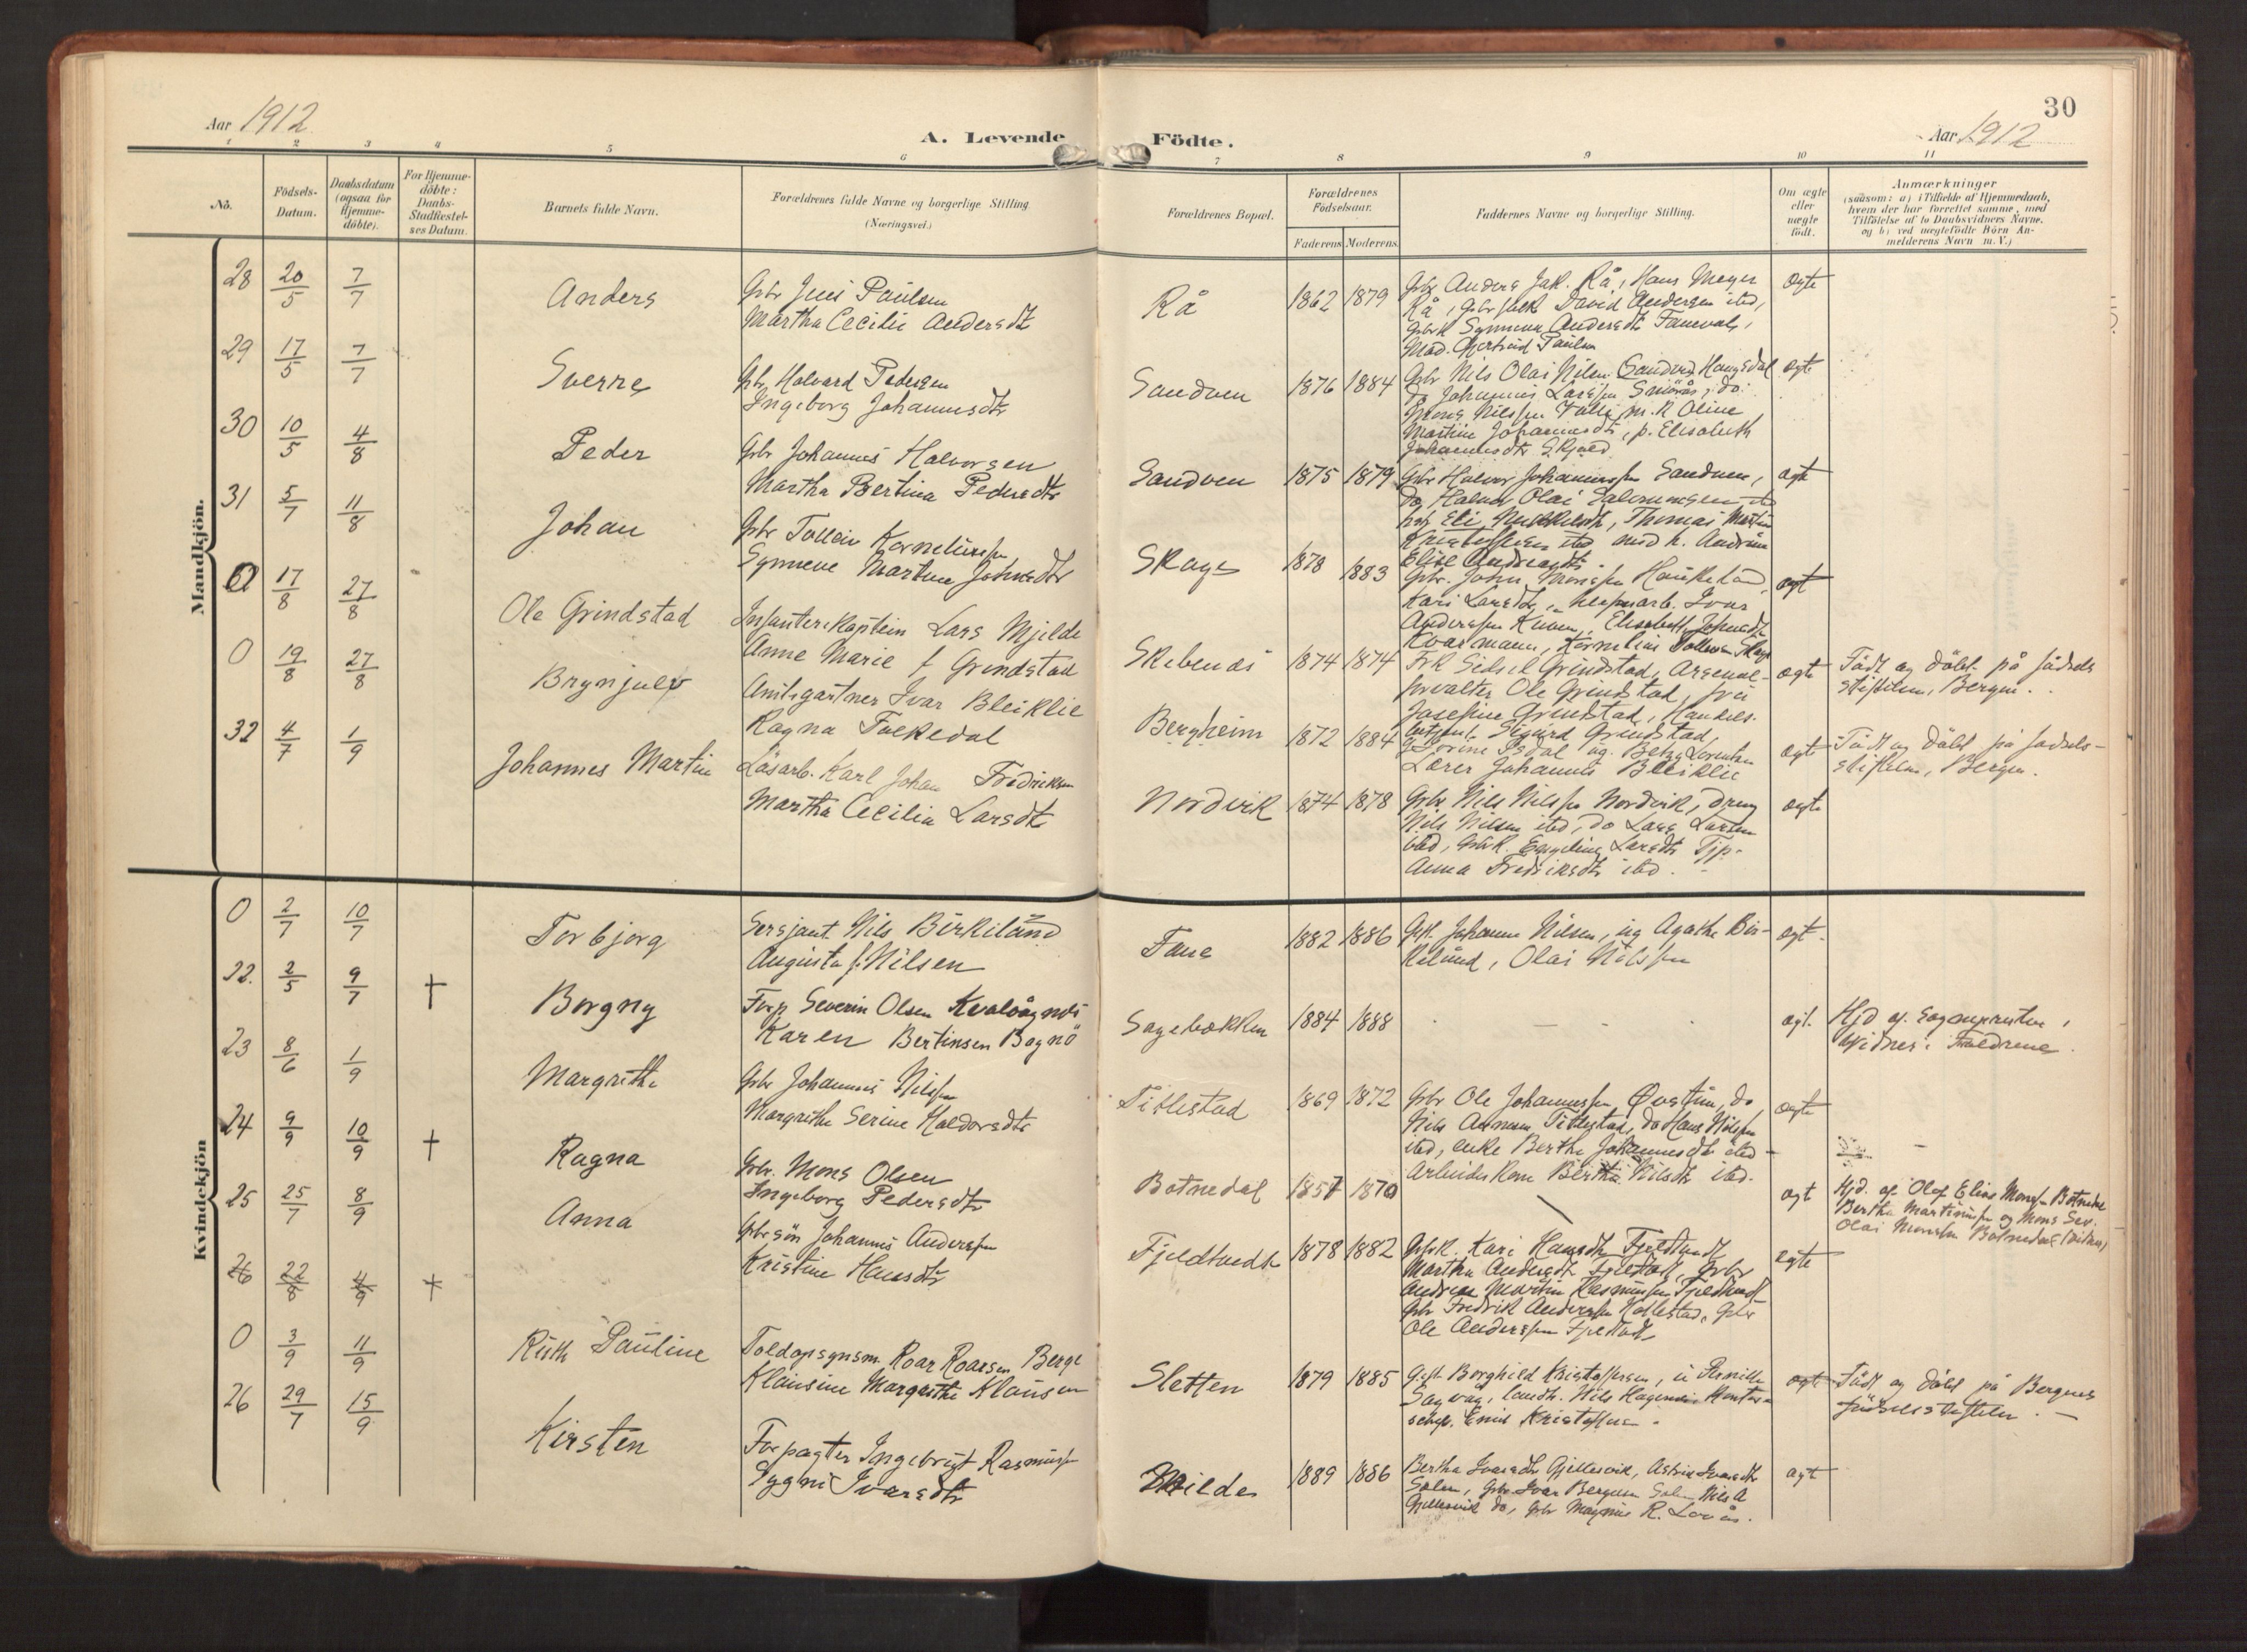 Aar 1912
A. Levende Födte.
30
Aar 1912
1 2 3 4 5 6 7 8 9 10 11
No.
Födsels-
Datum.
Daabsdatum
(ogsaa for
Hjemme-
döbte).
For Hjemme-
döbte:
Daabs-
Stadfæstel-
ses Datum.
Barnets fulde Navn.
Forældrenes fulde Navne og borgerlige Stilling.
(Næringsvei.)
Forældrenes Bopæl.
Forældrenes
Födselsaar.
Faderens Moderens.
Faddernes Navne og borgerlige Stilling.
Om ægte
eller
uægte
födt.
Anmærkninger
(saasom: a) i Tilfælde af Hjemmedaab,
hvem der har forrettet samme, med
Tilföielse af to Daabsvidners Navne,
og b) ved uægtefödte Börn An-
melderens Navn m. V.)
Mandkjön.
28 20/5 7/7 Anders
Gbr Jens Paulsen
Martha Cecilie Andersdt
Rå 1862 1879
Gbr Anders Jak. Rå, Hans Meyer
Rå, Gbr David Andersen ibd,
Gbrk Synneva Andersdt
Mad. Gjertrud Paulsen
ægte
29 17/5 7/7 Sverre
Gbr Halvard Pedersen
Ingeborg Johannesdtr
Sandven 1876 1884
Gbr Nils Olai Nilsen Haugsdal
Do Johannes Larssen Smörås, do
Mons Nilssen p. k. Oline
Martine Johannesdt, p. Elisabeth
Johannesdtr Skjold
ægte
30 10/5 4/8 Peder
Gbr Johannes Halvorsen
Martha Bertina Pedersdtr
Sandven 1875 1879
Gbr Halvor Johannessen Sandven,
Do Halvor Olai
Eli Thomas Martin
ibd med k. Andrine
Elise Andreasdt
ægt
31 5/7 11/8 Johan
Gbr Tolleiv Korneliussen
Synneve Martine Johnsdtr
Skage 1878 1883
Gbr. John Monssen Haukeland,
Kari Larsdt, Ivar
Anderssen Elisabeth Johnsdt
Kvarmann, Kornelius Skage
ægt
0 17/8 27/8 Ole Grindstad
Infanterikaptein Lars Mjelde
Anne Marie f Grindstad
Skibenes 1874 1874
Frk Sidsel Grindstad, Arsenal-
forvalter Ole Grindstad, frú
Josefine Grindstad, Handels-
Sigurd Grindstad
ægte
Född og döbt på födsels
stiftelsen, Bergen.
0 19/8 27/8 Brynjulv
Amtsgartner Ivar Bleiklie
Ragna Folkedal
Bergheim 1872 1884
Isdal ug. Betzy Lorentzen
Lærer Johannes Bleiklie
ægt
Födt og döbt på födsels-
stiftelsen, Bergen.
32 4/7 1/9 Johannes Martin
Lösarb. Karl Johan Fredriksen
Martha Cecilia Larsdtr
Nordvik 1874 1878
Gbr Nils Nilssen Nordvik, dreng
Nils Nilsen ibd, do Lars Larsen
ibd, Gbrk. Larsdtr Tjp.
Anna Fredriksdtr ibd.
ægte
Kvindekjön
0 2/7 10/7 Torbjorg
Sersjant Nils Birkeland
Augusta f. Nilsen
Fane 1882 1886
Gift Johanne Nilsen, ug Agathe Bir-
keland, Olai Nilssen
ægt.
22. 2/5 9/7 † Borgny
Forp Severin Olsen Kvalvågnes
Karen Bertinsen Bagnö
Sagebækken 1884 1888
ægt.
Hjd af Sognepresten,
Vidner: Forældrene.
23 8/6 1/9 Margrethe
Gbr Johannes Nilssen
Margrethe Serine Haldorsdtr
Titlestad 1869 1872
Gbr Ole Johannessen do
Nils Titlestad, do Hans Nilssen
ibd, enke Berthe Johannesdt ibd
Arbeiderkone Bertha Nilsdtr ibd.
ægte
24 9/9 10/9 † Ragna
Gbr. Mons Olsen
Ingeborg Pedersdtr
Botnedal 1857 1870
ægt
Hjd. af Olaf Elias Monssen Botnedal
Bertha Martinussen og Mons Sev.
Olai Monssen Botnedal (vidner)
25 25/7 8/9 Anna
Gbrsön Johannes Anderssen
Kristine Hansdtr
Fjeldtvedt 1878 1882
Gbrk. Kari Hansdtr Fjeldtvedt
Martha Andersdt Gbr
Andreas Martin Rasmussen Fjeldtvedt
Gbr Fredrik Anderssen Gbr
Ole Anderssen
ægte
26 22/8 4/9 †
0 3/9 11/9 Ruth Pauline
Toldopsynsm. Roar Roarsen Berge
Klausine Margrethe Klausen
Sletten 1879 1885
Gift Borghild Kristoffersen, ú Pernille
Sagvåg, landh. Nils Hagenes Kontor-
Emil Kristoffersen.
ægt
Födt og döbt på Bergens
födselsstiftelse.
26 29/7 15/9 Kirsten
Forpagter Ingebrigt Rasmussen
Sygni Ivarsdtr
Milde 1889 1886
Bertha Ivarsdtr Gjellesvik, Astrid Ivarsdtr
Solem, Gbr Ivar Bergesen Nils A
Gjellesvik do, Gbr Magnus R. Lovås.
ægt